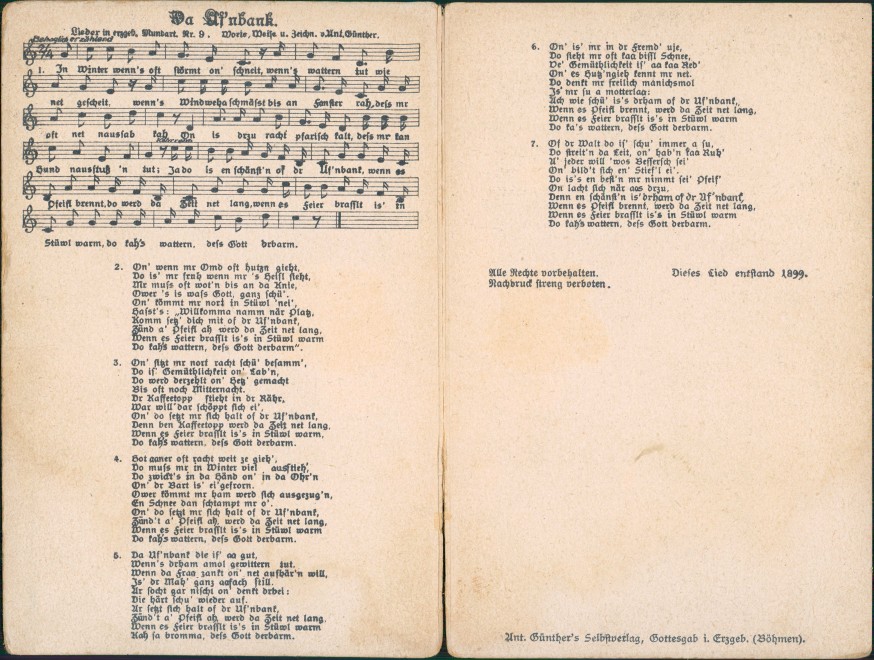 Da Uf'nbank.
Lieder in erzgeb. Mundart. Nr. 9. Worte, Weise u. Zeichn. v. Ant. Günther.
Behaglich erzählend
2/4
1. In Winter wenn's oft stürmt on' schneit, wenn's wattern tut wie
net gescheit, wenn's Windweha schmässt bis an Fanster rah, dess mr
oft net nausfah kah On is drzu racht pfarisch kalt, dess mr kan
Kehrreim
Hund nausstuß 'n tut; Ja do is en schänst'n of dr Uf'nbank, wenn es
Pfeifl brennt, do werd da Zeit net lang, wenn es Feier brasslt is' in
Stüwl warm, do kah's wattern, dess Gott drbarm.
2. On' wenn mr Omd oft hutzn gieht,
Do is' mr fruh wenn mr 's Heisl sieht,
Mr muss oft wot'n bis an da Knie,
Ower 's is wass Gott, ganz schü'.
On' kömmt mr nort in Stüwl 'nei',
Hasst's: „Willkomma namm när Platz,
Komm setz' dich mit of dr Uf'nbank,
Zünd a' Pfeifl ah, werd da Zeit net lang,
Wenn es Feier brasslt is's in Stüwl warm
Do kah's wattern, dess Gott derbarm“.
3. On' sitzt mr nort racht schü' besamm',
Do is' Gemüthlichkeit on' Lab'n,
Do werd derzehlt on' Hetz' gemacht
Bis oft noch Mitternacht.
Dr Kaffeetopp stieht in dr Röhr,
War will' dar schöppt sich ei',
On' do setzt mr sich halt of dr Uf'nbank,
Denn ben Kaffeetopp werd da Zeit net lang.
Wenn es Feier brasslt is's in Stüwl warm,
Do kah's wattern, dess Gott derbarm.
4. Hot aaner oft racht weit ze gieh',
Do muss mr in Winter viel ausstieh',
Do zwickt's in da Händ on' in da Ohr'n
On' dr Bart is' ei'gefrorn.
Ower kömmt mr ham werd sich ausgezug'n,
En Schnee dan schtampt mr o'.
On' do setzt mr sich halt of dr Uf'nbank,
Zünd't a' Pfeifl ah, werd da Zeit net lang,
Wenn es Feier brasslt is's in Stüwl warm
Do kah's wattern, dess Gott derbarm.
5. Da Uf'nbank die is' aa gut,
Wenn's drham amol gewittern tut.
Wenn da Fraa zankt on' net aufhär'n will,
Is' dr Mah' ganz aafach still.
Är socht gar nischt on' denkt drbei:
Die härt schu' wieder auf.
Är setzt sich halt of dr Uf'nbank,
Zünd't a' Pfeifl ah, werd da Zeit net lang.
Wenn es Feier brasslt is's in Stüwl warm
Kah sa bromma, dess Gott derbarm.
6. On' is' mr in dr Fremd' uje,
Do sieht mr oft kaa bissl Schnee,
De' Gemüthlichkeit is' aa kaa Red'
On' es Hutz'ngieh kennt mr net.
Do denkt mr freilich mänichsmol
Is' mr su a mol
Ach wie schü' is's drham of dr Uf'nbank,
Wenn es Pfeifl brennt, werd da Zeit net lang,
Wenn es Feier brasslt is's in Stüwl warm
Do ka's wattern, dess Gott derbarm.
7. Of dr Walt do is' schu' immer a su,
Do streit'n da Leit, on' hab'n kaa Ruh'
A' jeder will 'wos Bessersch sei'
On' bild't sich en' Stief'l ei'.
Do is's en best'n mr nimmt sei' Pfeif'
On lacht sich när aas drzu.
Denn en schänst'n is' drham of dr Uf'nbank,
Wenn es Pfeifl brennt, werd da Zeit net lang,
Wenn es Feier brasslt is's in Stüwl warm
Do kah's wattern, dess Gott derbarm.
Alle Rechte vorbehalten. Dieses Lied entstand 1899.
Nachdruck streng verboten.
Ant. Günther's Selbstverlag, Gottesgab i. Erzgeb. (Böhmen).